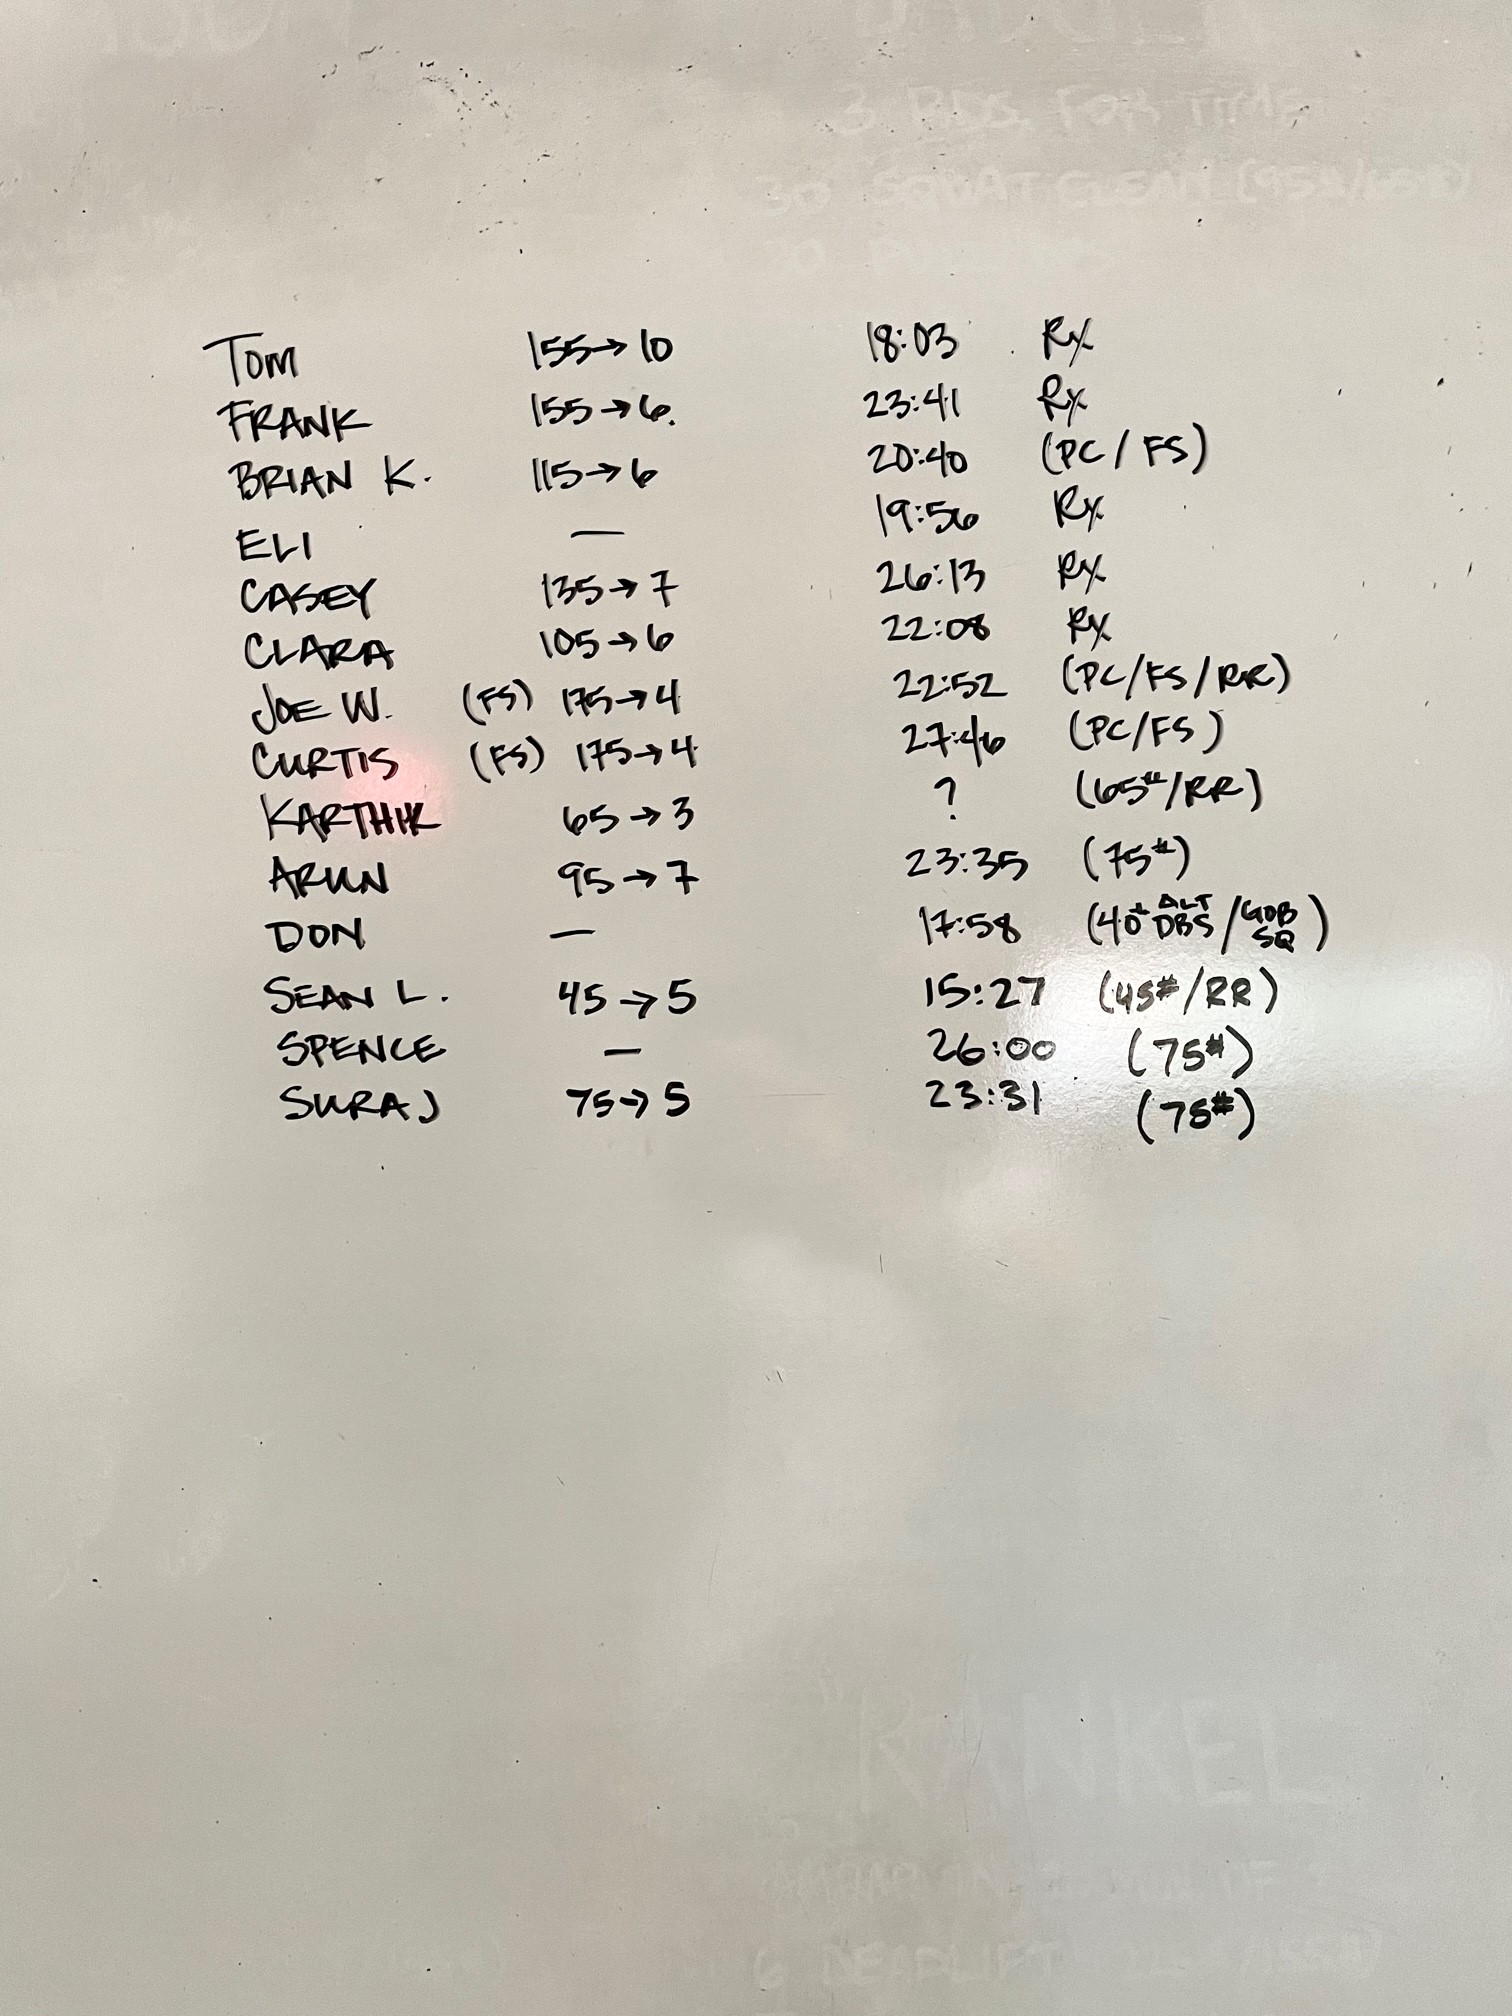 3 RDS. FOR TIME
30 SQUAT CLEAN (95#/65#)
30
TOM 155→10 18:03 Rx
FRANK 155→6. 23:41 Rx
BRIAN K. 115→6 20:40 (PC/FS)
ELI — 19:56 Rx
CASEY 135→7 26:13 Rx
CLARA 105→6 22:08 Rx
JOE W. (FS) 175→4 22:52 (PC/FS/RR)
CURTIS (FS) 175→4 27:46 (PC/FS)
KARTHIK 65→3 ? (65#/RR)
ARUN 95→7 23:35 (75#)
DON — 17:58 (40# ALT DBS/GOB SQ)
SEAN L. 45→5 15:27 (45#/RR)
SPENCE — 26:00 (75#)
SURAJ 75→5 23:31 (75#)
"RANKEL
6 DEADLIFT